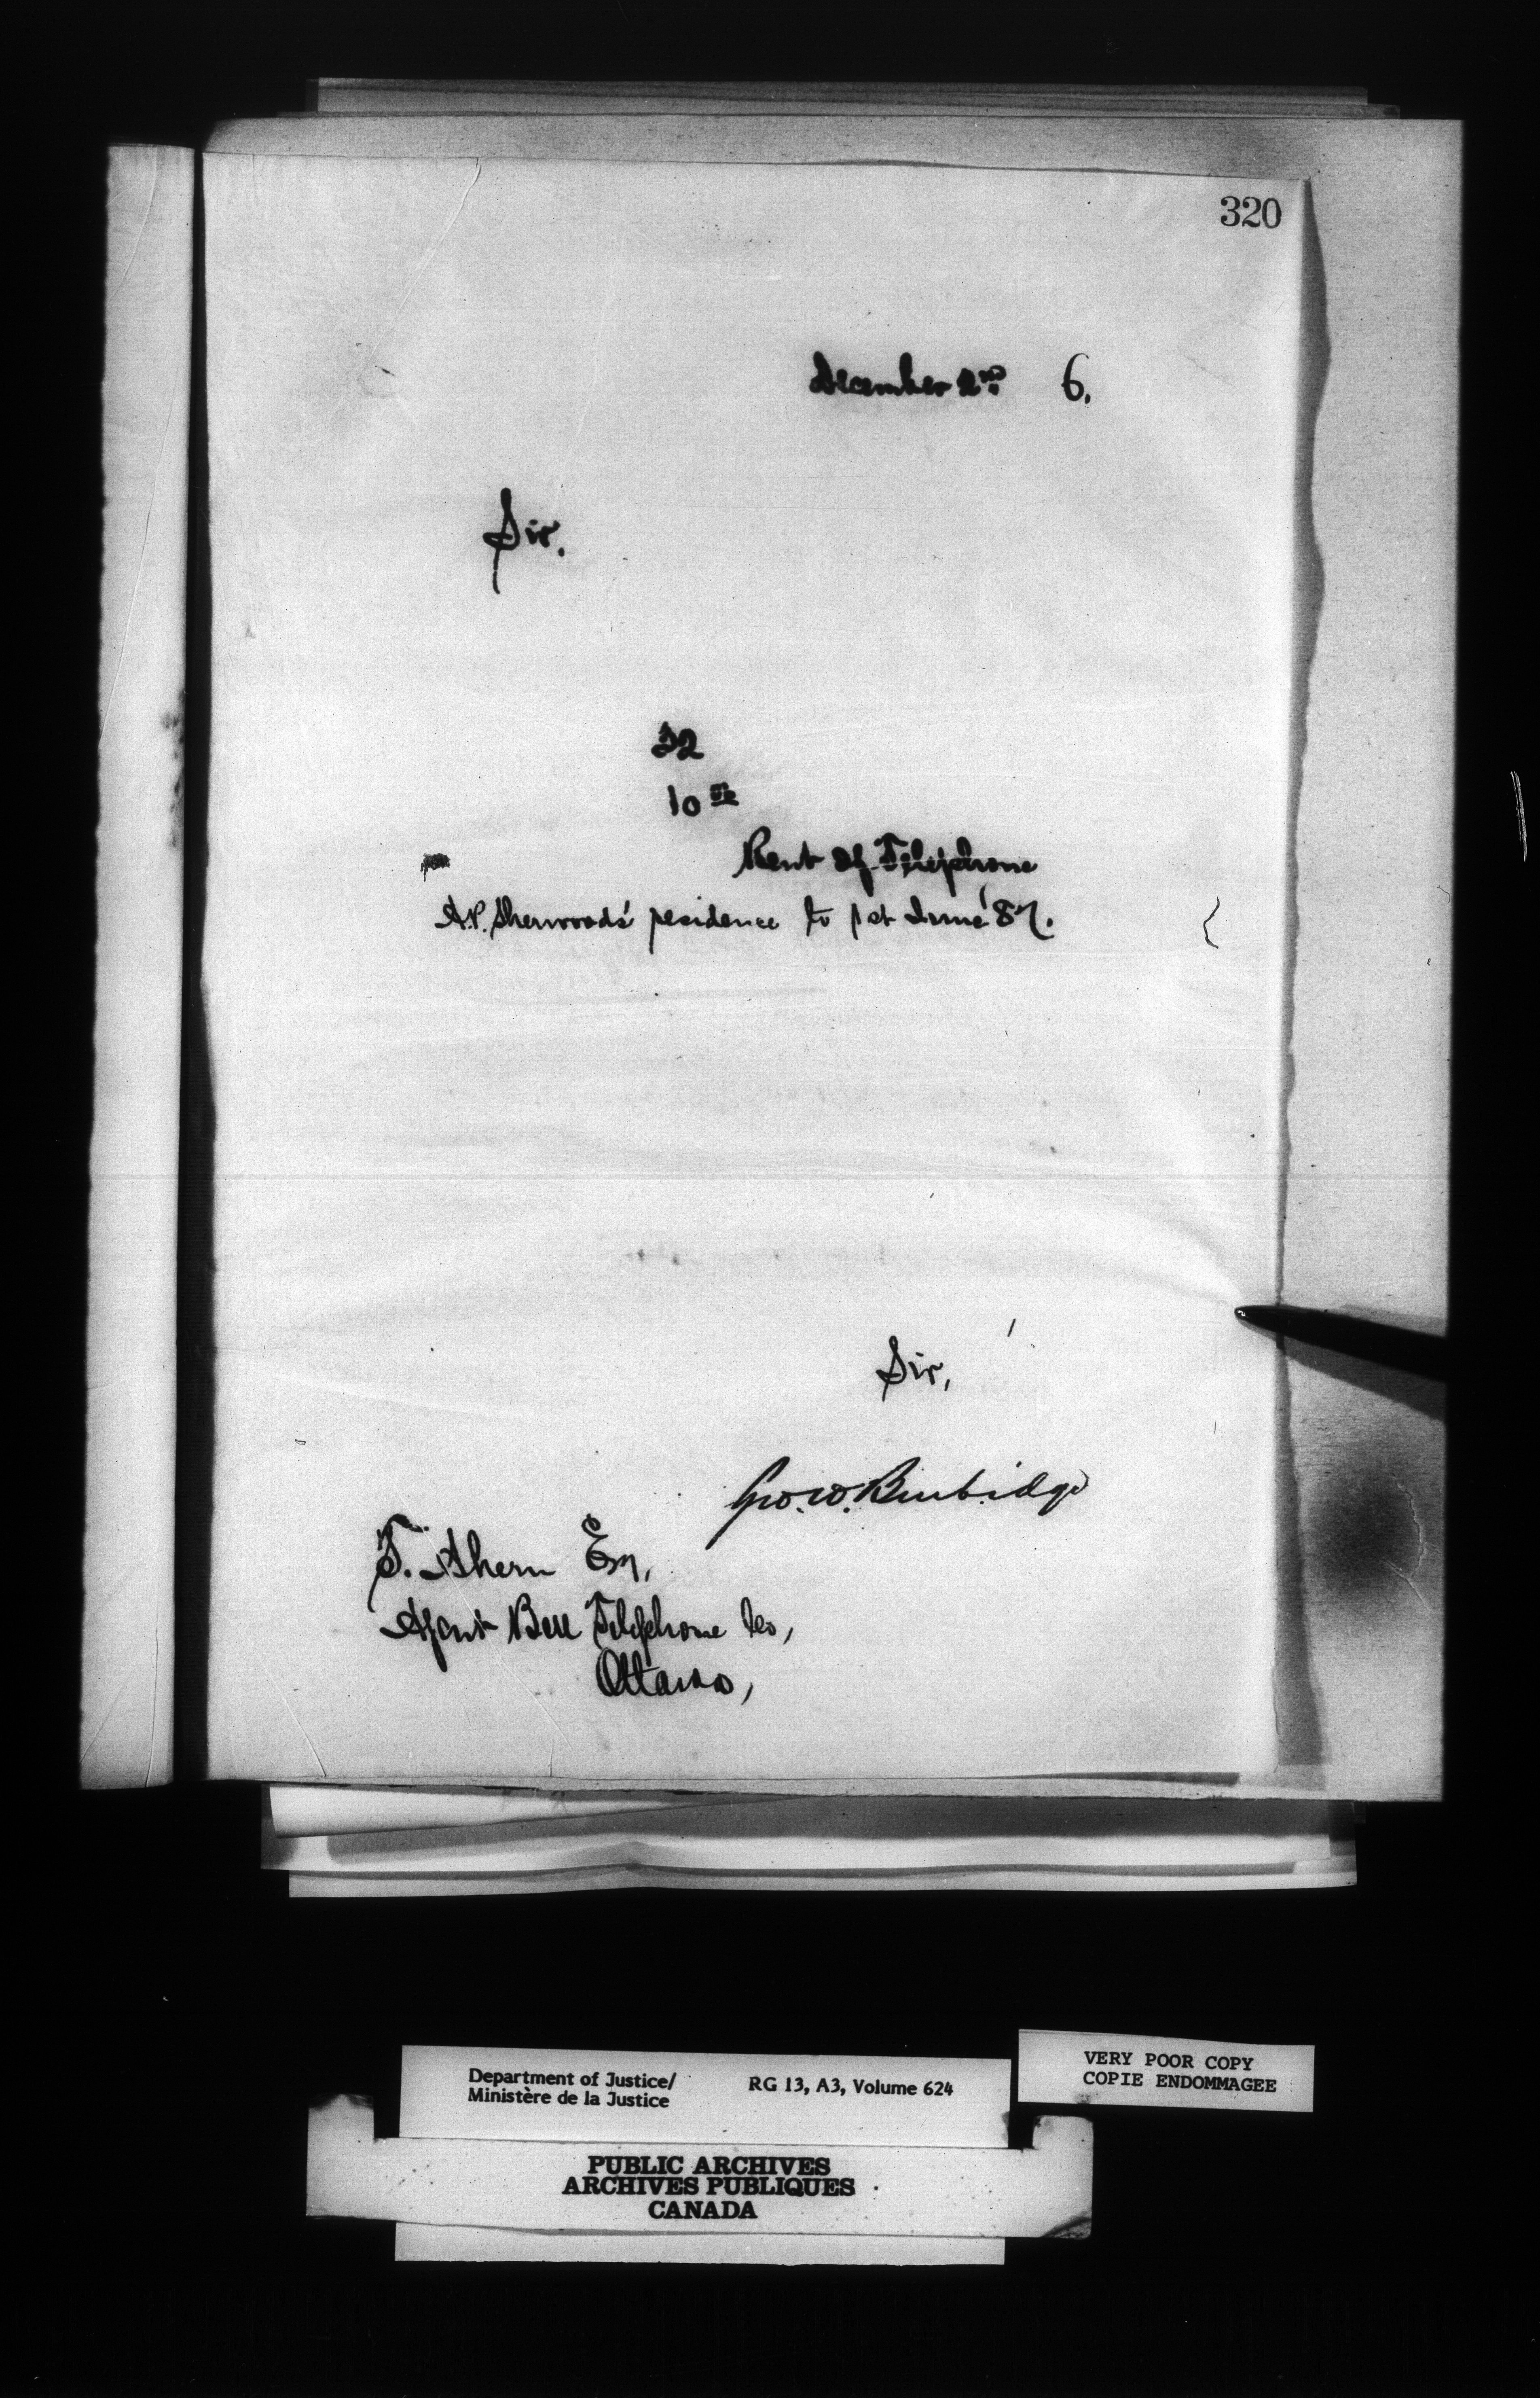 320
December 2nd 6.
Sir.
32
10 00
Rent of Telephone
A.P. Sherwood's residence to 1st June '87.
Sir,
Geo. W. Burbidge
T. Ahern Esq,
Agent Bell Telephone Co,
Ottawa,
VERY POOR COPY
COPIE ENDOMMAGEE
Department of Justice/ RG 13, A3, Volume 624
Ministère de la Justice
PUBLIC ARCHIVES
ARCHIVES PUBLIQUES
CANADA